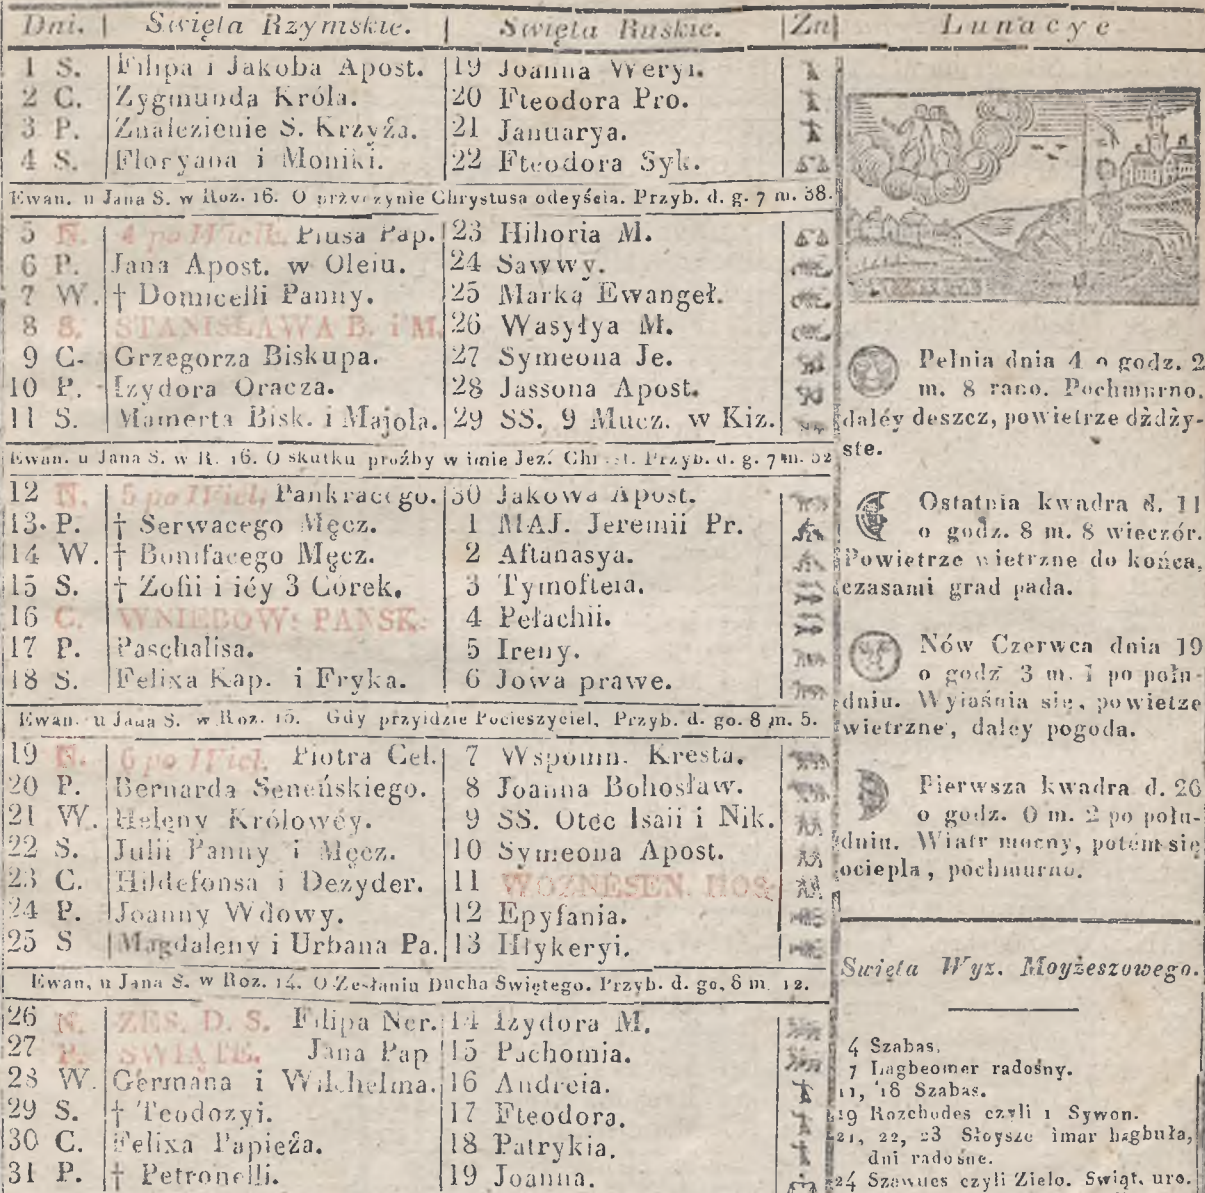 Dni. Święta Rzymskie. Święta Ruskie. Zn Lunacye
1 S. Filipa i Jakoba Apost. 19 Joanna Weryi.
2 C. Zygmunda Króla. 20 Fteodora Pro.
3 P. Znalezienie S. Krzyża. 21 Januarya.
4 S. Floryana i Moniki. 22 Fteodora Syk.
Ewan. u Jana S. w Roz. 16. O przyczynie Chrystusa odeyścia. Przyb. d. g. 7 m. 38.
5 N. 4 po Wielk. Piusa Pap. 23 Hihoria M.
6 P. Jana Apost. w Oleiu. 24 Sawwy.
7 W. † Domicelli Panny. 25 Marka Ewangeł.
8 S. STANISŁAWA B. i M. 26 Wasyłya M.
9 C. Grzegorza Biskupa. 27 Symeona Je.
10 P. Izydora Oracza. 28 Jassona Apost.
11 S. Mamerta Bisk. i Majola. 29 SS. 9 Mucz. w Kiz.
Ewan. u Jana S. w R. 16. O skutku proźby w imie Jez. Chryst. Przyb. d. g. 7 m. 52
12 N. 5 po Wiel. Pankracego. 30 Jakowa Apost.
13. P. † Serwacego Męcz. 1 MAJ. Jeremii Pr.
14 W. † Bonifacego Męcz. 2 Aftanasya.
15 S. † Zofii i iéy 3 Córek. 3 Tymofteia.
16 C. WNIEBOW: PAŃSK: 4 Pełachii.
17 P. Paschalisa. 5 Ireny.
18 S. Felixa Kap. i Fryka. 6 Jowa prawe.
Ewan. u Jana S. w Roz. 15. Gdy przyidzie Pocieszyciel, Przyb. d. go. 8 m. 5.
19 N. 6 po Wiel. Piotra Cel. 7 Wspomn. Kresta.
20 P. Bernarda Seneńskiego. 8 Joanna Bohosław.
21 W. Heleny Królowéy. 9 SS. Otec Isaii i Nik.
22 S. Julii Panny i Męcz. 10 Symeona Apost.
23 C. Hildefonsa i Dezyder. 11 WOZNESEN. HOS:
24 P. Joanny Wdowy. 12 Epyfania.
25 S Magdaleny i Urbana Pa. 13 Hłykeryi.
Ewan. u Jana S. w Roz. 14. O Zesłaniu Ducha Swiętego. Przyb. d. go. 8 m. 12.
26 N. ZES. D. S. Filipa Ner. 14 Izydora M.
27 P. SWIĄTE. Jana Pap 15 Pachomia.
28 W. Germana i Wilchelma. 16 Andreia.
29 S. † Teodozyi. 17 Fteodora.
30 C. Felixa Papieża. 18 Patrykia.
31 P. † Petronelli. 19 Joanna.
Pełnia dnia 4 o godz. 2
m. 8 rano. Pochmurno,
daléy deszcz, powietrze dżdży-
ste.
Ostatnia kwadra d. 11
o godz. 8 m. 8 wieczór.
Powietrze wietrzne do końca,
czasami grad pada.
Nów Czerwca dnia 19
o godz 3 m. 1 po połu-
dniu. Wyiaśnia się, powietze
wietrzne, daley pogoda.
Pierwsza kwadra d. 26
o godz. 0 m. 2 po połu-
dniu. Wiatr mocny, potém się
ociepla, pochmurno.
Święta Wyz. Moyżeszowego.
4 Szabas.
7 Lagbeomer radośny.
11, 18 Szabas.
19 Rozchodes czyli 1 Sywon.
21, 22, 23 Słoysze imar hagbuła,
dni radośne.
24 Szawues czyli Zielo. Swiąt. uro.